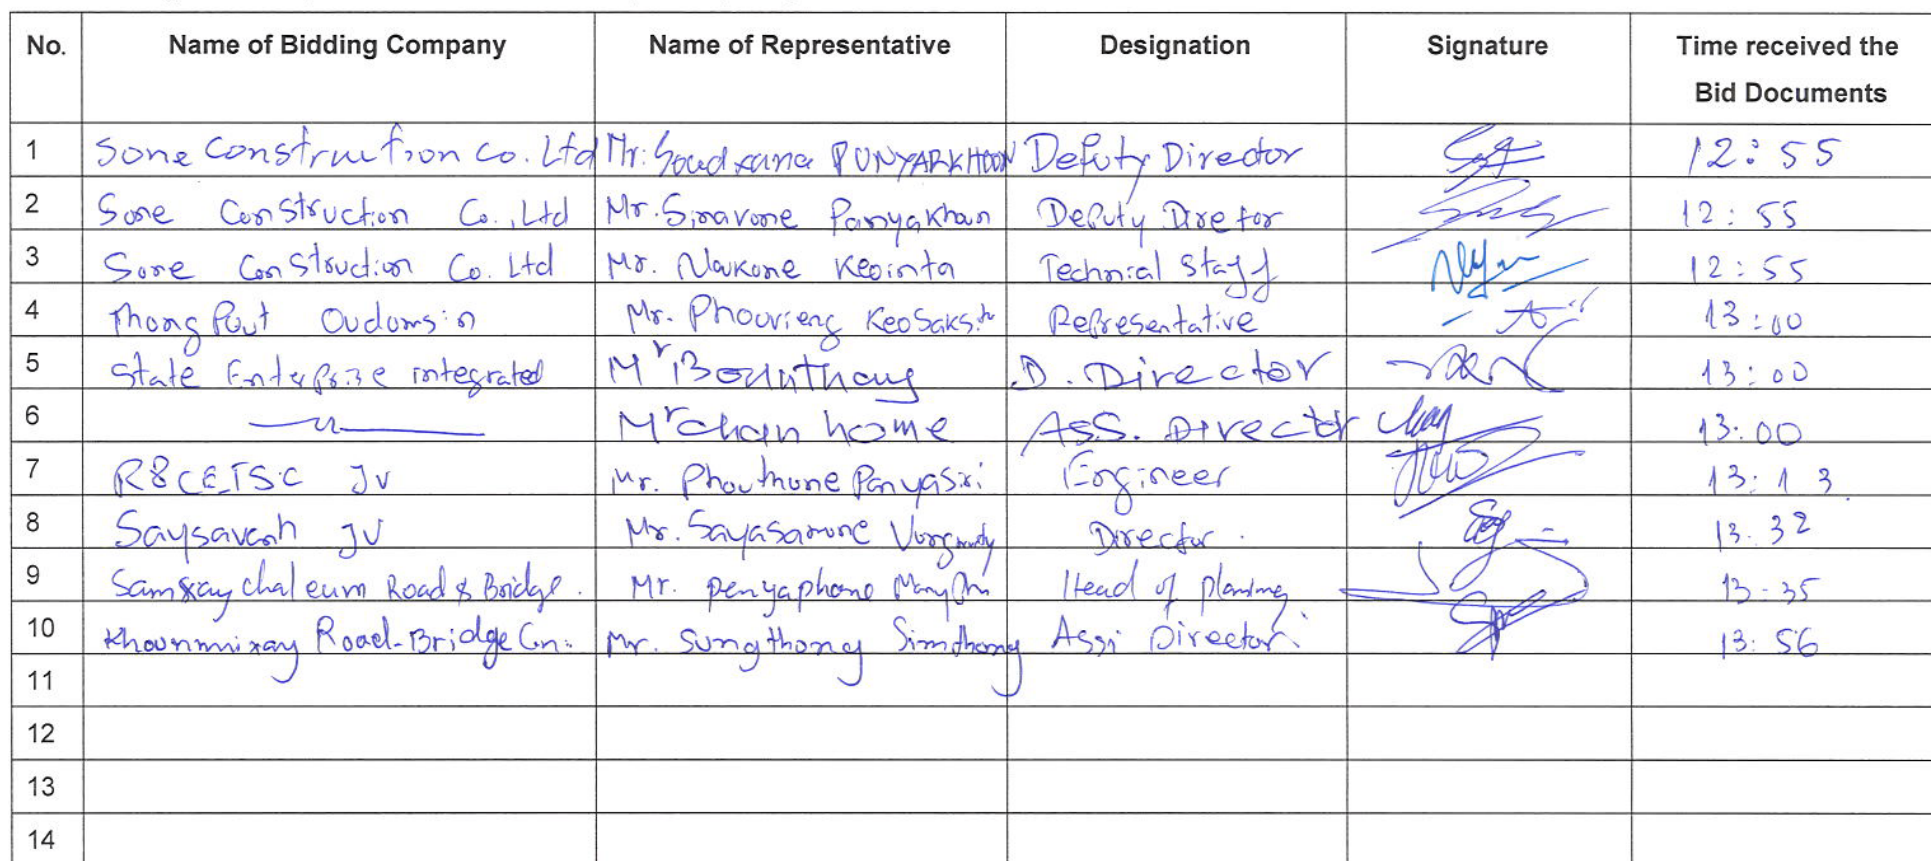 No. Name of Bidding Company Name of Representative Designation Signature Time received the
Bid Documents
1 Sone Construction Co. Ltd Mr. Soudxana PUNYARKHOUN Deputy Director 12:55
2 Sone Construction Co., Ltd Mr. Sinavone Panyakhoun Deputy Director 12:55
3 Sone Construction Co. Ltd Mr. Navkone Keointa Technical Staff 12:55
4 Thong Pout Oudomsin Mr. Phouvieng Representative 13:00
5 State Enterprise integrated Mr Bounthong D. Director 13:00
6 Mr Chan home Ass. Director 13:00
7 JV Mr. Phouthone Panyasiri Engineer 13:13
8 Saysavanh JV Mr. Sayasamone Director. 13.32
9 Samxaychaleum Road & Bridge. Mr. Penyaphone Head of planing 13-35
10 Khounmixay Road-Bridge Con. Mr. Sungthong Simthong Assi Director. 13:56
11
12
13
14